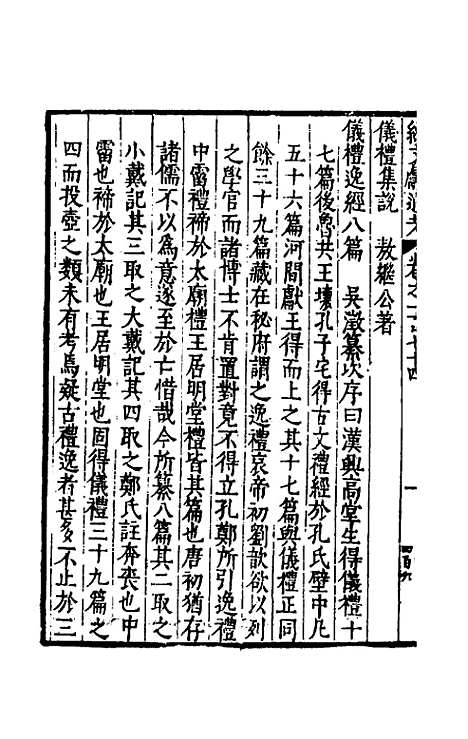 續文獻通考 卷之一百七十四 一 四百九
儀禮集說　敖繼公著
儀禮逸經八篇　吳澂纂次序曰漢興高堂生得儀禮十
七篇後魯共王壞孔子宅得古文禮經於孔氏壁中凡
五十六篇河間獻王得而上之其十七篇與儀禮正同
餘三十九篇藏在秘府謂之逸禮哀帝初劉歆欲以列
之學官而諸博士不肯置對竟不得立孔鄭所引逸禮
中霤禮禘於太廟禮王居明堂禮皆其篇也唐初猶存
諸儒不以爲意遂至於亡惜哉今所纂八篇其二取之
小戴記其三取之大戴記其四取之鄭氏註奔喪也中
霤也禘於太廟也王居明堂也固得儀禮三十九篇之
四而投壺之類未有考焉疑古禮逸者甚多不止於三